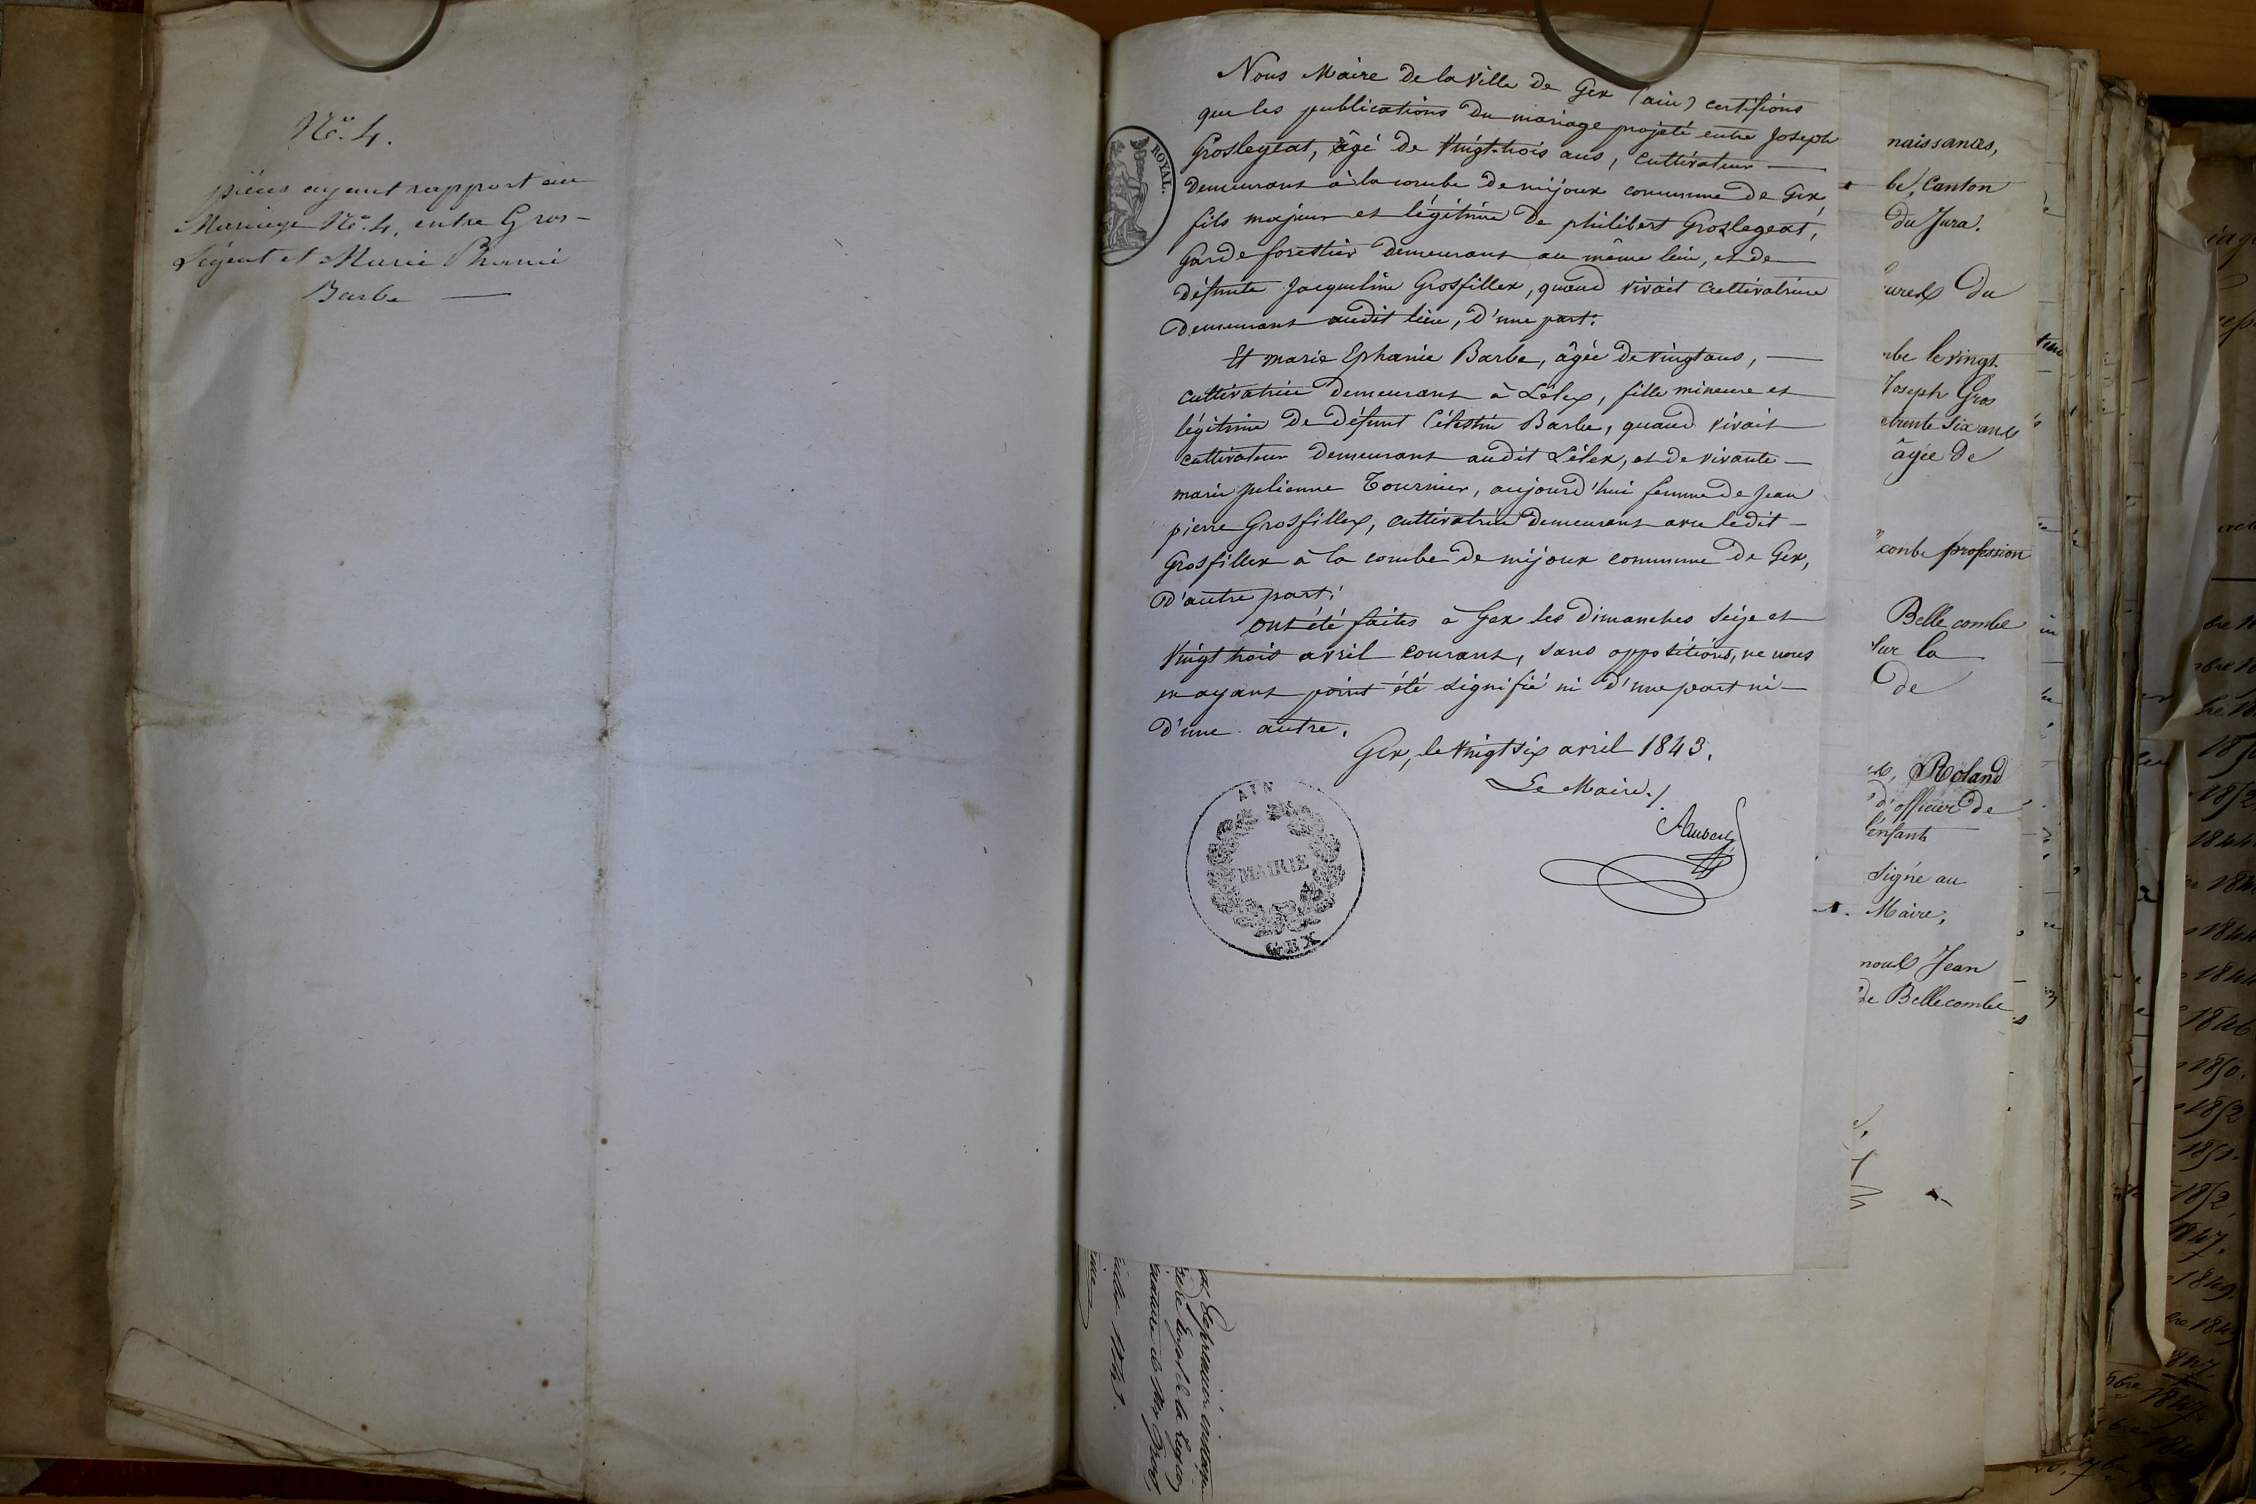 No. 4.
pièces ayant rapport au
Mariage No. 4, entre Gros-
Légeat et Marie Phanie
Barbe
ROYAL.
Nous Maire de la Ville de Gex (ain) certifions
que les publications du mariage projeté entre Joseph
Groslegeat, âgé de Vingt-trois ans, cultivateur
demeurant à la combe de mijoux commune de Gex
fils majeur et légitime de philibert Groslegeat,
Garde forestier demeurant au même lieu, et de
défunte Jacqueline Grosfillex, quand vivait cultivatrice
demeurant audit lieu, d'une part.
Et marie Ephanie Barbe, âgée de vingt ans,
cultivatrice demeurant à Lélex, fille mineure et
légitime de défunt Célestin Barbe, quand vivait
cultivateur demeurant audit Lélex, et de vivante
marie Julienne Tournier, aujourd'hui femme de Jean
pierre Grosfillex, cultivatrice demeurant avec ledit
Grosfillex à la combe de mijoux commune de Gex,
d'autre part.
Ont été faites à Gex les dimanches seize et
Vingt trois avril courant, sans oppositions, ne nous
en ayant point été signifié ni d'une part ni
d'une autre.
Gex, le Vingt six avril 1843.
Le Maire./
AIN
MAIRIE
GEX
naissances,
be, Canton
du Jura.
du
le vingt
Joseph Gros
trente six ans
âgée de
profession
Bellecombe
Sur la
de
Roland
d'officier de
l'enfant
Signé au
Maire,
nous Jean
de Bellecombe
1844
1844
1846
1850.
1852
1851.
1852
1847.
1849.
1847.